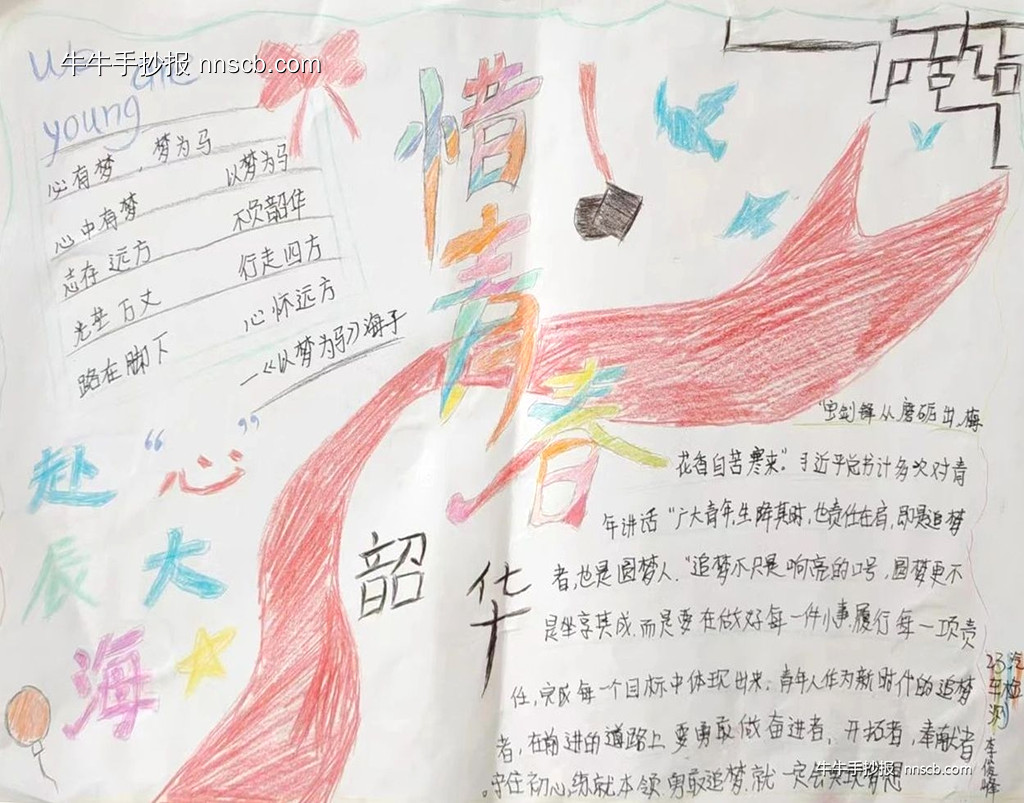 牛牛手抄报 nnscb.com
We are
young
必有梦，梦为马
以梦为马
心中有梦
不负韶华
志存远方
行走四方
光芒万丈
心怀远方
路在脚下
—《以梦为马》海子
惜青春
韶华
赴“心”
辰大
海
"宝剑锋从磨砺出,梅
花香自苦寒来"。习近平总书计多次对青
年讲话"广大青年,生降其时,也责任在肩,即是追梦
者,也是圆梦人."追梦不只是响亮的口号,圆梦更不
是坐享其成.而是要在做好每一件小事履行每一项责
任,完成每一个目标中体现出来.青年人作为新时代的追梦
者,在前进的道路上要勇敢做奋进者、开拓者,奉献者
守住初心,练就本领.勇敢追梦.就一定会实现梦想。
23汽
车检
测
李俊峰
牛牛手抄报 nnscb.com